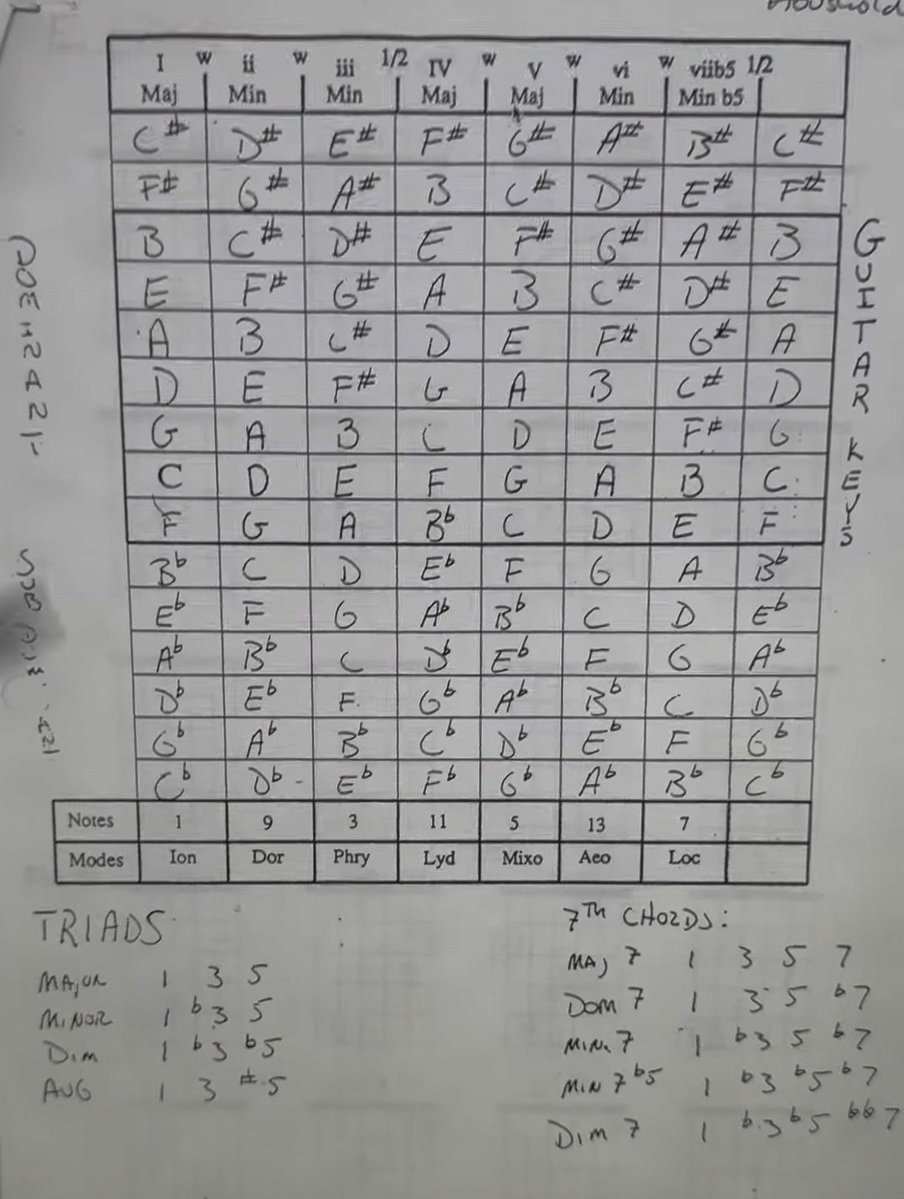 Household
I W ii W iii 1/2 IV W V W vi W viib5 1/2
Maj Min Min Maj Maj Min Min b5
C# D# E# F# G# A# B# C#
F# G# A# B C# D# E# F#
B C# D# E F# G# A# B
E F# G# A B C# D# E
A B C# D E F# G# A
D E F# G A B C# D
G A B C D E F# G
C D E F G A B C
F G A Bb C D E F
Bb C D Eb F G A Bb
Eb F G Ab Bb C D Eb
Ab Bb C Db Eb F G Ab
Db Eb F Gb Ab Bb C Db
Gb Ab Bb Cb Db Eb F Gb
Cb Db Eb Fb Gb Ab Bb Cb
GUITAR KEYS
Notes 1 9 3 11 5 13 7
Modes Ion Dor Phry Lyd Mixo Aeo Loc
TRIADS
MAJOR 1 3 5
MINOR 1 b3 5
DIM 1 b3 b5
AUG 1 3 #5
7TH CHORDS:
MAJ 7 1 3 5 7
DOM 7 1 3 5 b7
MIN 7 1 b3 5 b7
MIN 7b5 1 b3 b5 b7
DIM 7 1 b3 b5 bb7